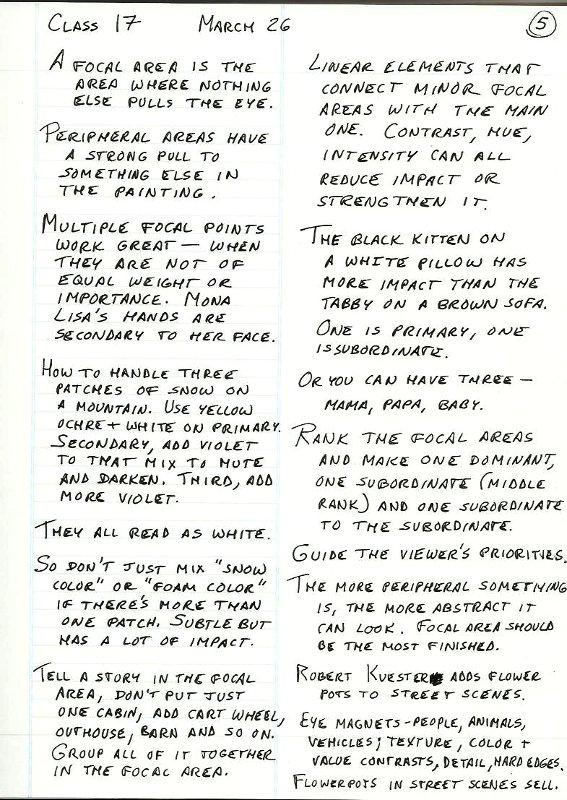 CLASS 17 MARCH 26
5
A FOCAL AREA IS THE
AREA WHERE NOTHING
ELSE PULLS THE EYE.
PERIPHERAL AREAS HAVE
A STRONG PULL TO
SOMETHING ELSE IN
THE PAINTING.
MULTIPLE FOCAL POINTS
WORK GREAT — WHEN
THEY ARE NOT OF
EQUAL WEIGHT OR
IMPORTANCE. MONA
LISA'S HANDS ARE
SECONDARY TO HER FACE.
HOW TO HANDLE THREE
PATCHES OF SNOW ON
A MOUNTAIN. USE YELLOW
OCHRE + WHITE ON PRIMARY.
SECONDARY, ADD VIOLET
TO THAT MIX TO MUTE
AND DARKEN. THIRD, ADD
MORE VIOLET.
THEY ALL READ AS WHITE.
SO DON'T JUST MIX "SNOW
COLOR" OR "FOAM COLOR"
IF THERE'S MORE THAN
ONE PATCH. SUBTLE BUT
HAS A LOT OF IMPACT.
TELL A STORY IN THE FOCAL
AREA, DON'T PUT JUST
ONE CABIN, ADD CART WHEEL,
OUTHOUSE, BARN AND SO ON.
GROUP ALL OF IT TOGETHER
IN THE FOCAL AREA.
LINEAR ELEMENTS THAT
CONNECT MINOR FOCAL
AREAS WITH THE MAIN
ONE. CONTRAST, HUE,
INTENSITY CAN ALL
REDUCE IMPACT OR
STRENGTHEN IT.
THE BLACK KITTEN ON
A WHITE PILLOW HAS
MORE IMPACT THAN THE
TABBY ON A BROWN SOFA.
ONE IS PRIMARY, ONE
IS SUBORDINATE.
OR YOU CAN HAVE THREE —
MAMA, PAPA, BABY.
RANK THE FOCAL AREAS
AND MAKE ONE DOMINANT,
ONE SUBORDINATE (MIDDLE
RANK) AND ONE SUBORDINATE
TO THE SUBORDINATE.
GUIDE THE VIEWER'S PRIORITIES.
THE MORE PERIPHERAL SOMETHING
IS, THE MORE ABSTRACT IT
CAN LOOK. FOCAL AREA SHOULD
BE THE MOST FINISHED.
ROBERT KUESTER ADDS FLOWER
POTS TO STREET SCENES.
EYE MAGNETS - PEOPLE, ANIMALS,
VEHICLES; TEXTURE, COLOR +
VALUE CONTRASTS, DETAIL, HARD EDGES.
FLOWERPOTS IN STREET SCENES SELL.